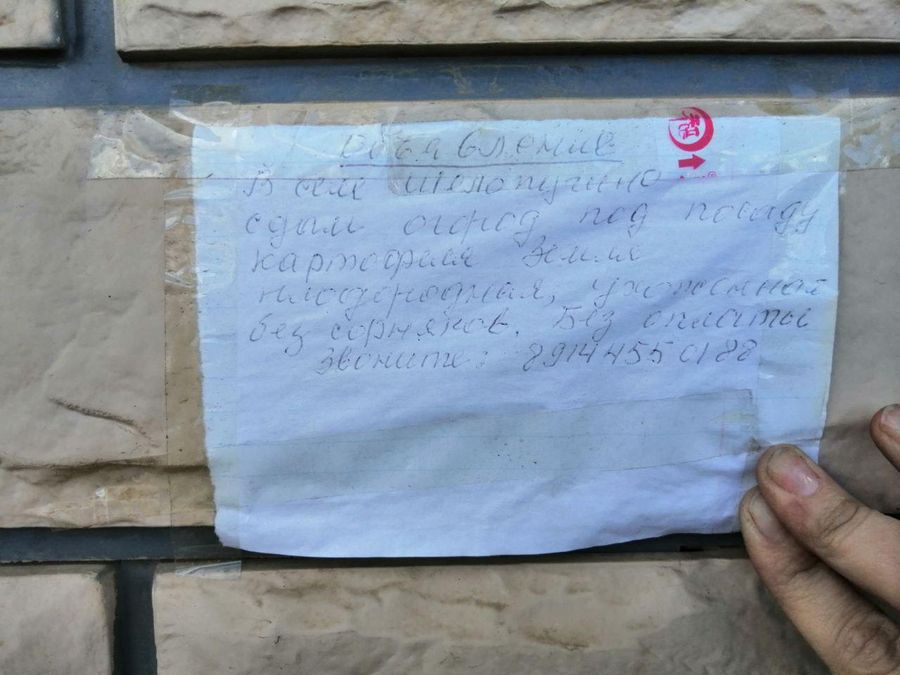 Объявление
В селе Шелопугино
сдам огород под посаду
картофеля Земля
плодородная, ухоженная
без сорняков. Без оплаты
Звоните: 89144550188